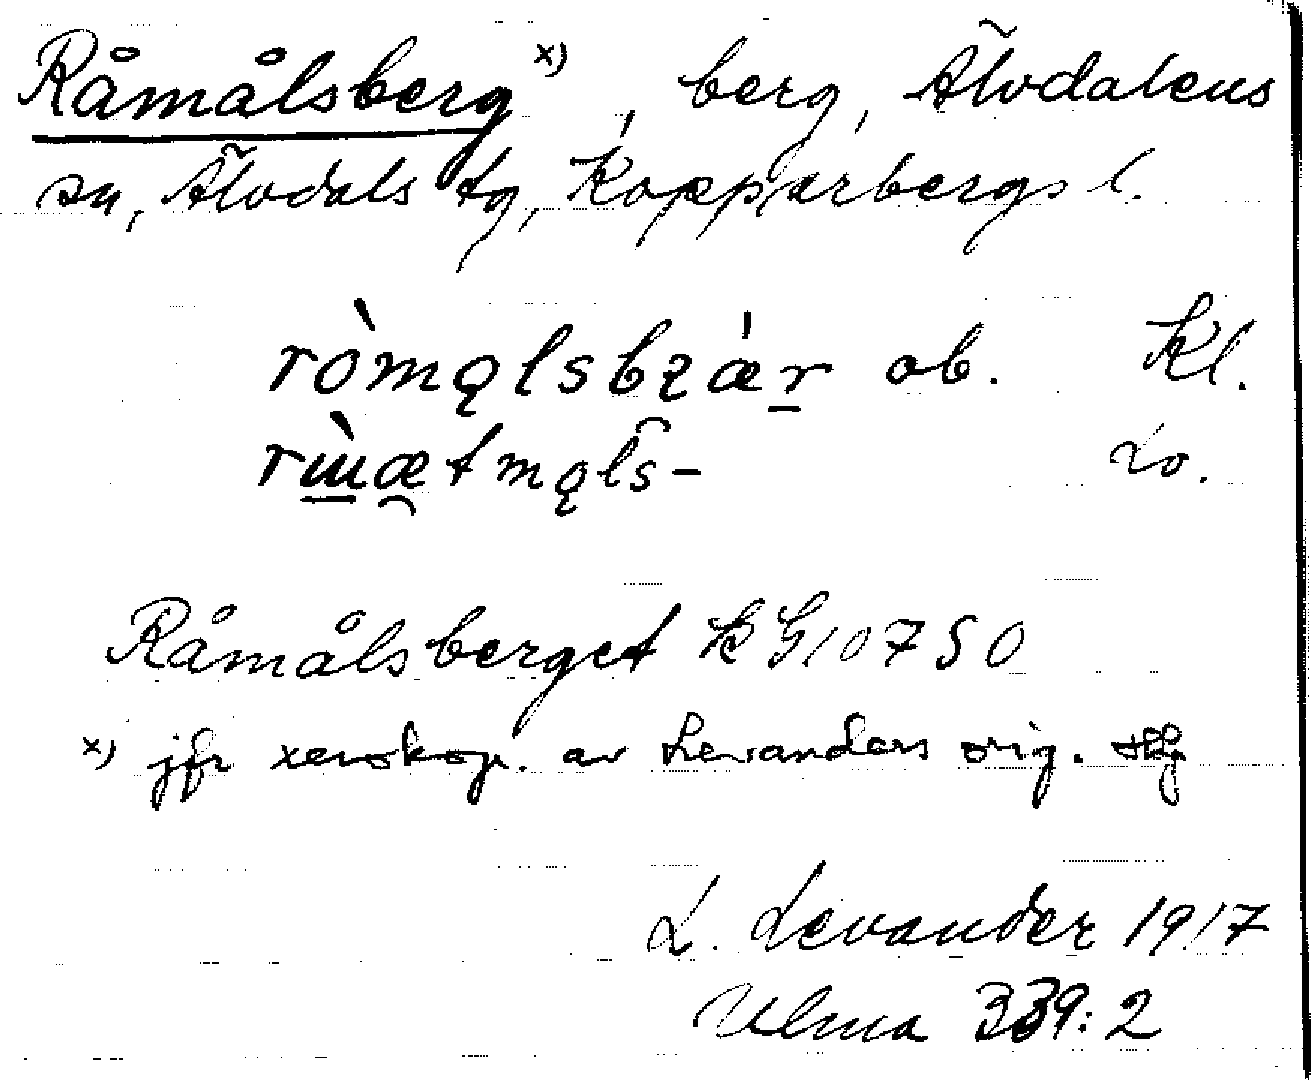 Råmålsberg x), berg, Älvdalens
sn, Älvdals tg, Kopparbergs l.
ròmǫlsbʒæ̀r ob. Kl.
rɯ̀ætmǫls- Lo.
Råmålsberget k G10750
x) jfr xeroskop. av Levanders orig.
L. Levander 1917
Ulma 339:2